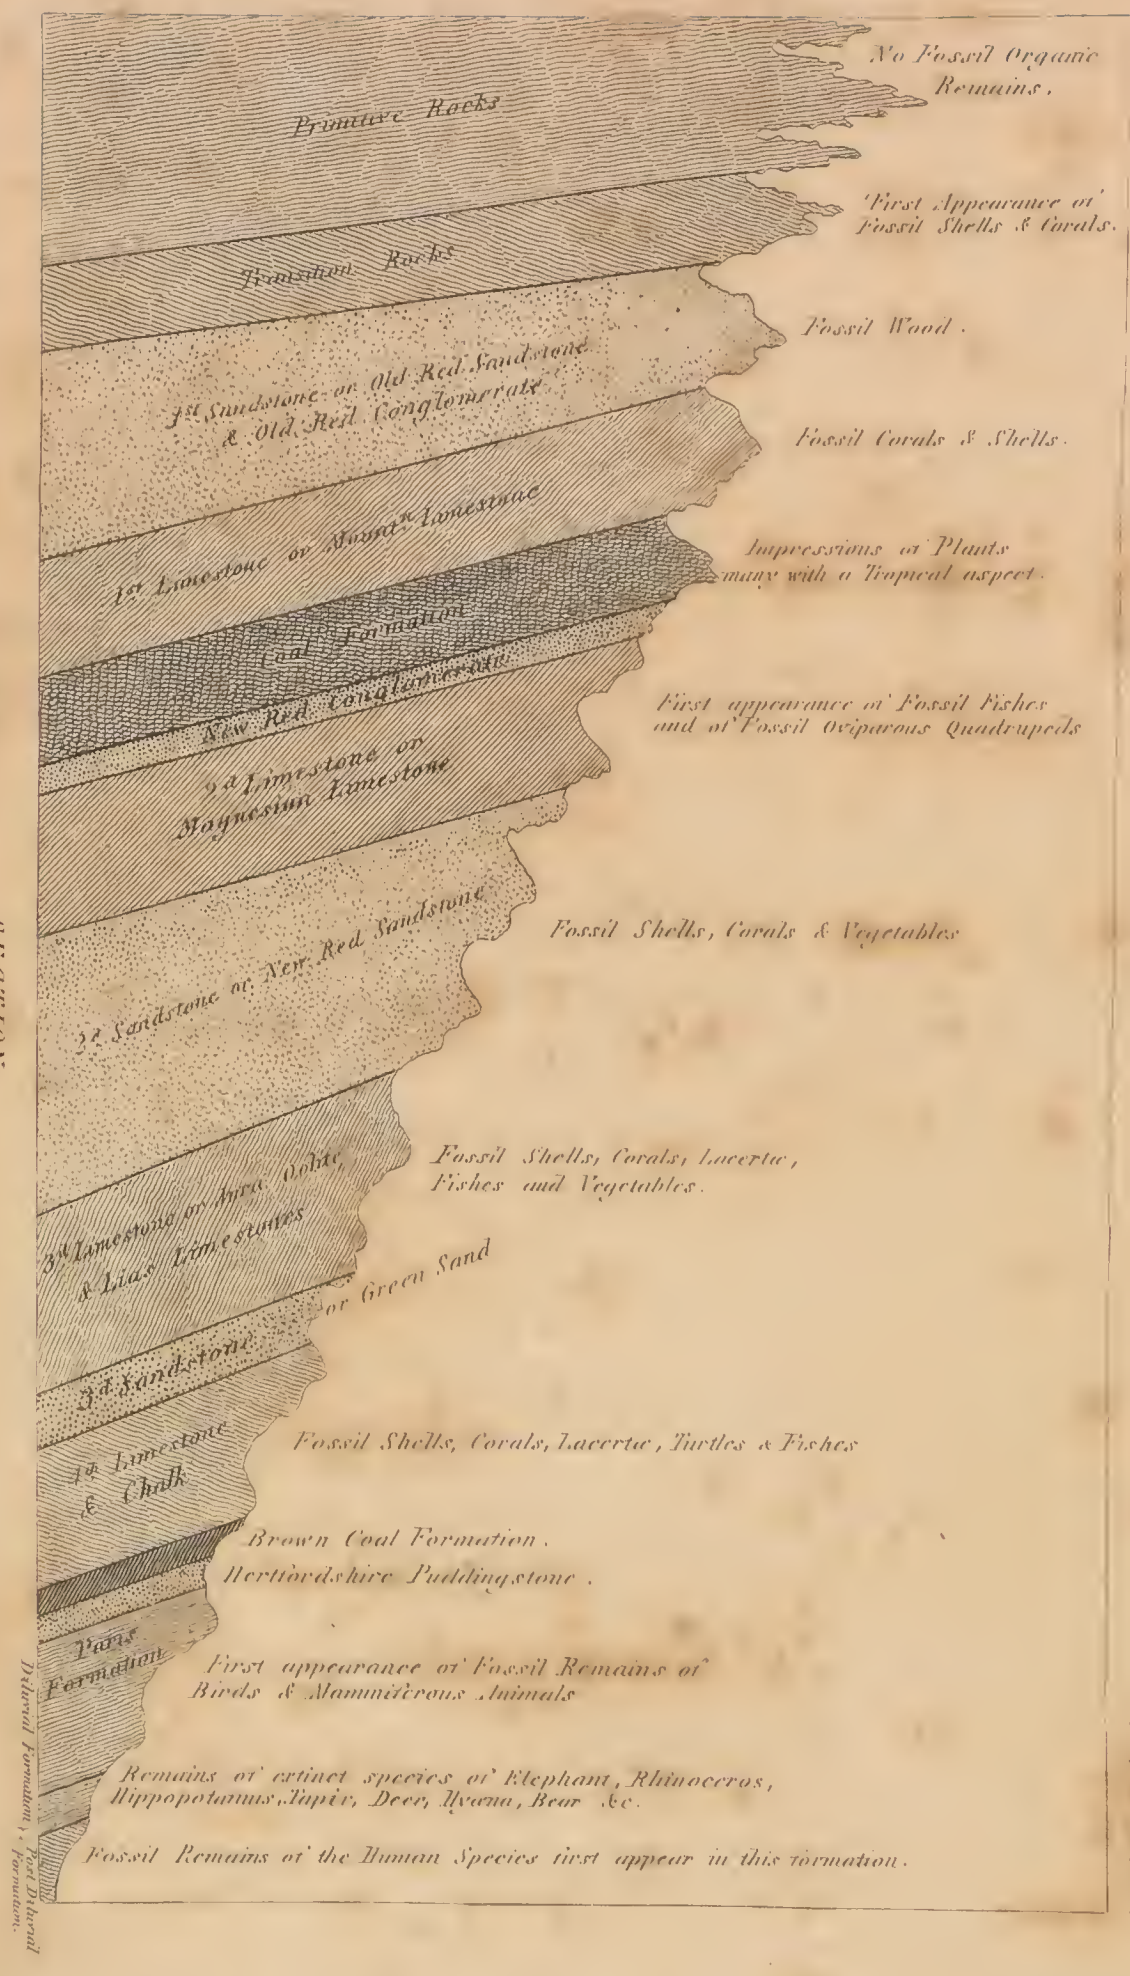 Primitive Rocks
No Fossil Organic
Remains.
Transition Rocks
First Appearance of
Fossil Shells & Corals.
1st Sandstone or Old Red Sandstone
& Old Red Conglomerate
Fossil Wood.
1st Limestone or Mountn Limestone
Fossil Corals & Shells.
Coal Formation
Impressions of Plants
many with a Tropical aspect.
New Red Conglomerate
2d Limestone or
Magnesian Limestone
First appearance of Fossil Fishes
and of Fossil Oviparous Quadrupeds
2d Sandstone or New Red Sandstone
Fossil Shells, Corals & Vegetables
3d Limestone or Jura Oolite,
& Lias Limestones
Fossil Shells, Corals, Lacertæ,
Fishes and Vegetables.
3d Sandstone or Green Sand
4th Limestone
& Chalk
Fossil Shells, Corals, Lacertæ, Turtles & Fishes
Brown Coal Formation.
Hertfordshire Puddingstone.
Paris
Formation
First appearance of Fossil Remains of
Birds & Mammiferous Animals
Diluvial Formation
Remains of extinct species of Elephant, Rhinoceros,
Hippopotamus, Tapir, Deer, Hyæna, Bear &c.
Post Diluvial
Formation.
Fossil Remains of the Human Species first appear in this formation.